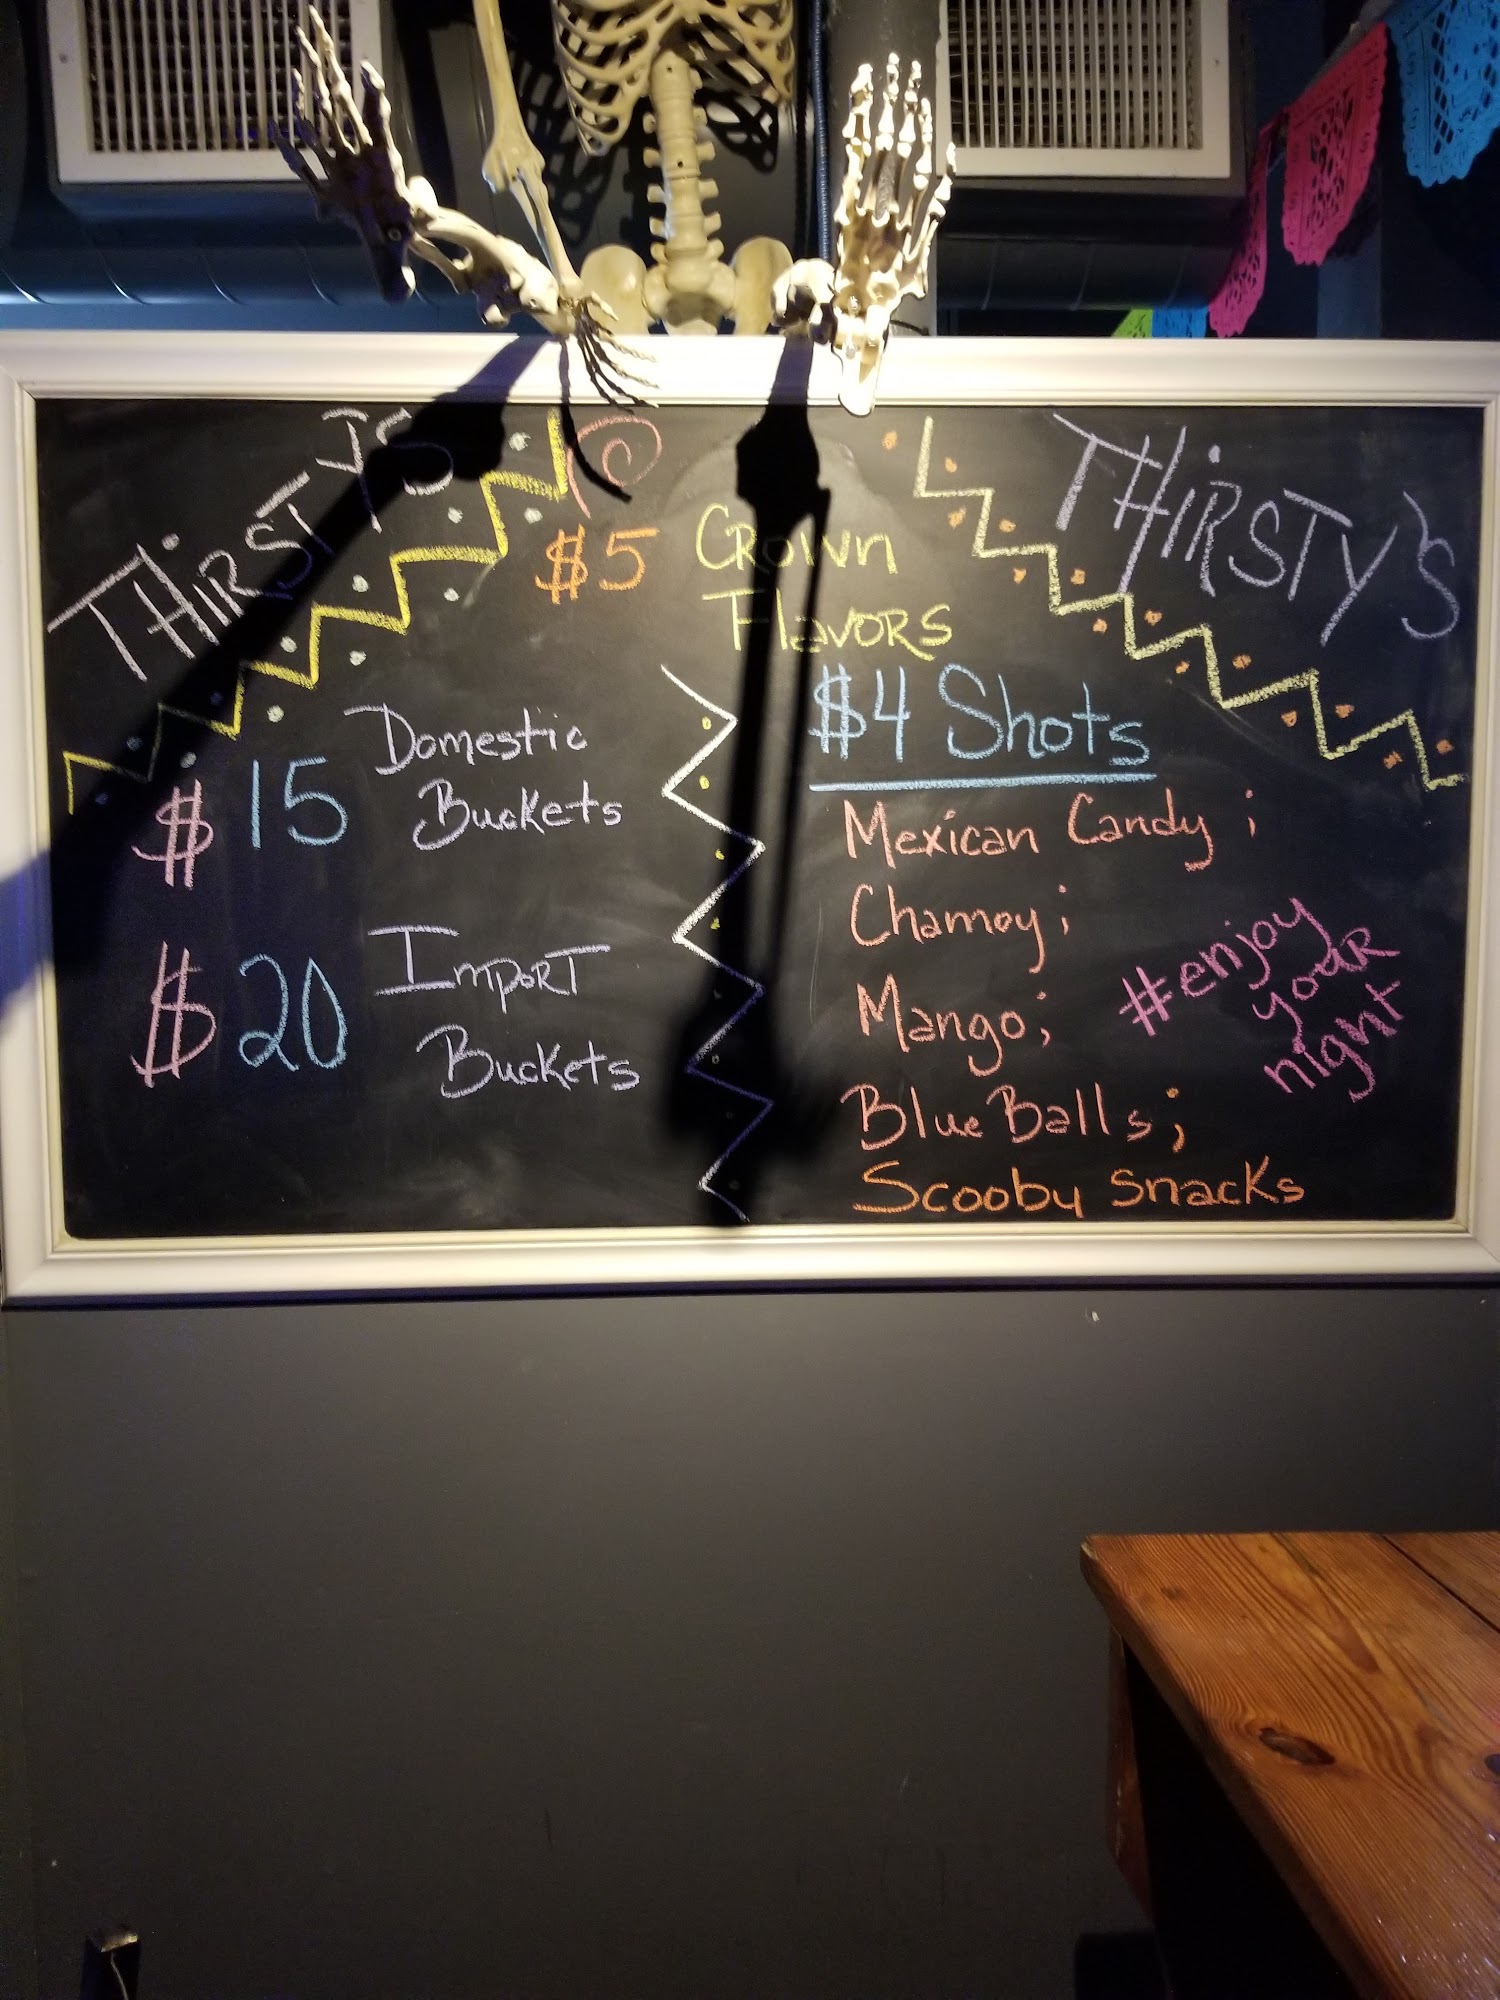 THIRSTY'S
THIRSTY'S
$5 Crown
Flavors
$15 Domestic
Buckets
$20 Import
Buckets
$4 Shots
Mexican Candy ;
Chamoy ;
Mango ;
Blue Balls ;
Scooby Snacks
#enjoy
your
night